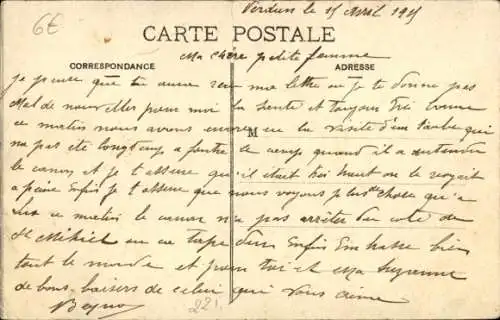 6€
Verdun le 15 Avril 1915
CARTE POSTALE
Ma chère petite femme
CORRESPONDANCE
ADRESSE
Je pense que tu auras reçu ma lettre ou je te donne pas
Mal de nouvelles pour moi la santé et toujours très bonne
ce matin nous avons encore eu la visite d'un taube qui
M
na pas été longtemps a foutre le camp quand il a entendu
le canon et je t'assure qu'il était haut on le voyait
a peine Enfin je t'assure que nous voyons plus de chose qu'a
ce matin le canon n'a pas arrêter du coté de
St Mihiel on ce tape dur Enfin Embrasse bien
tout le monde et pour toi et Ma Suzanne
de bons baisers de celui qui vous aime
221